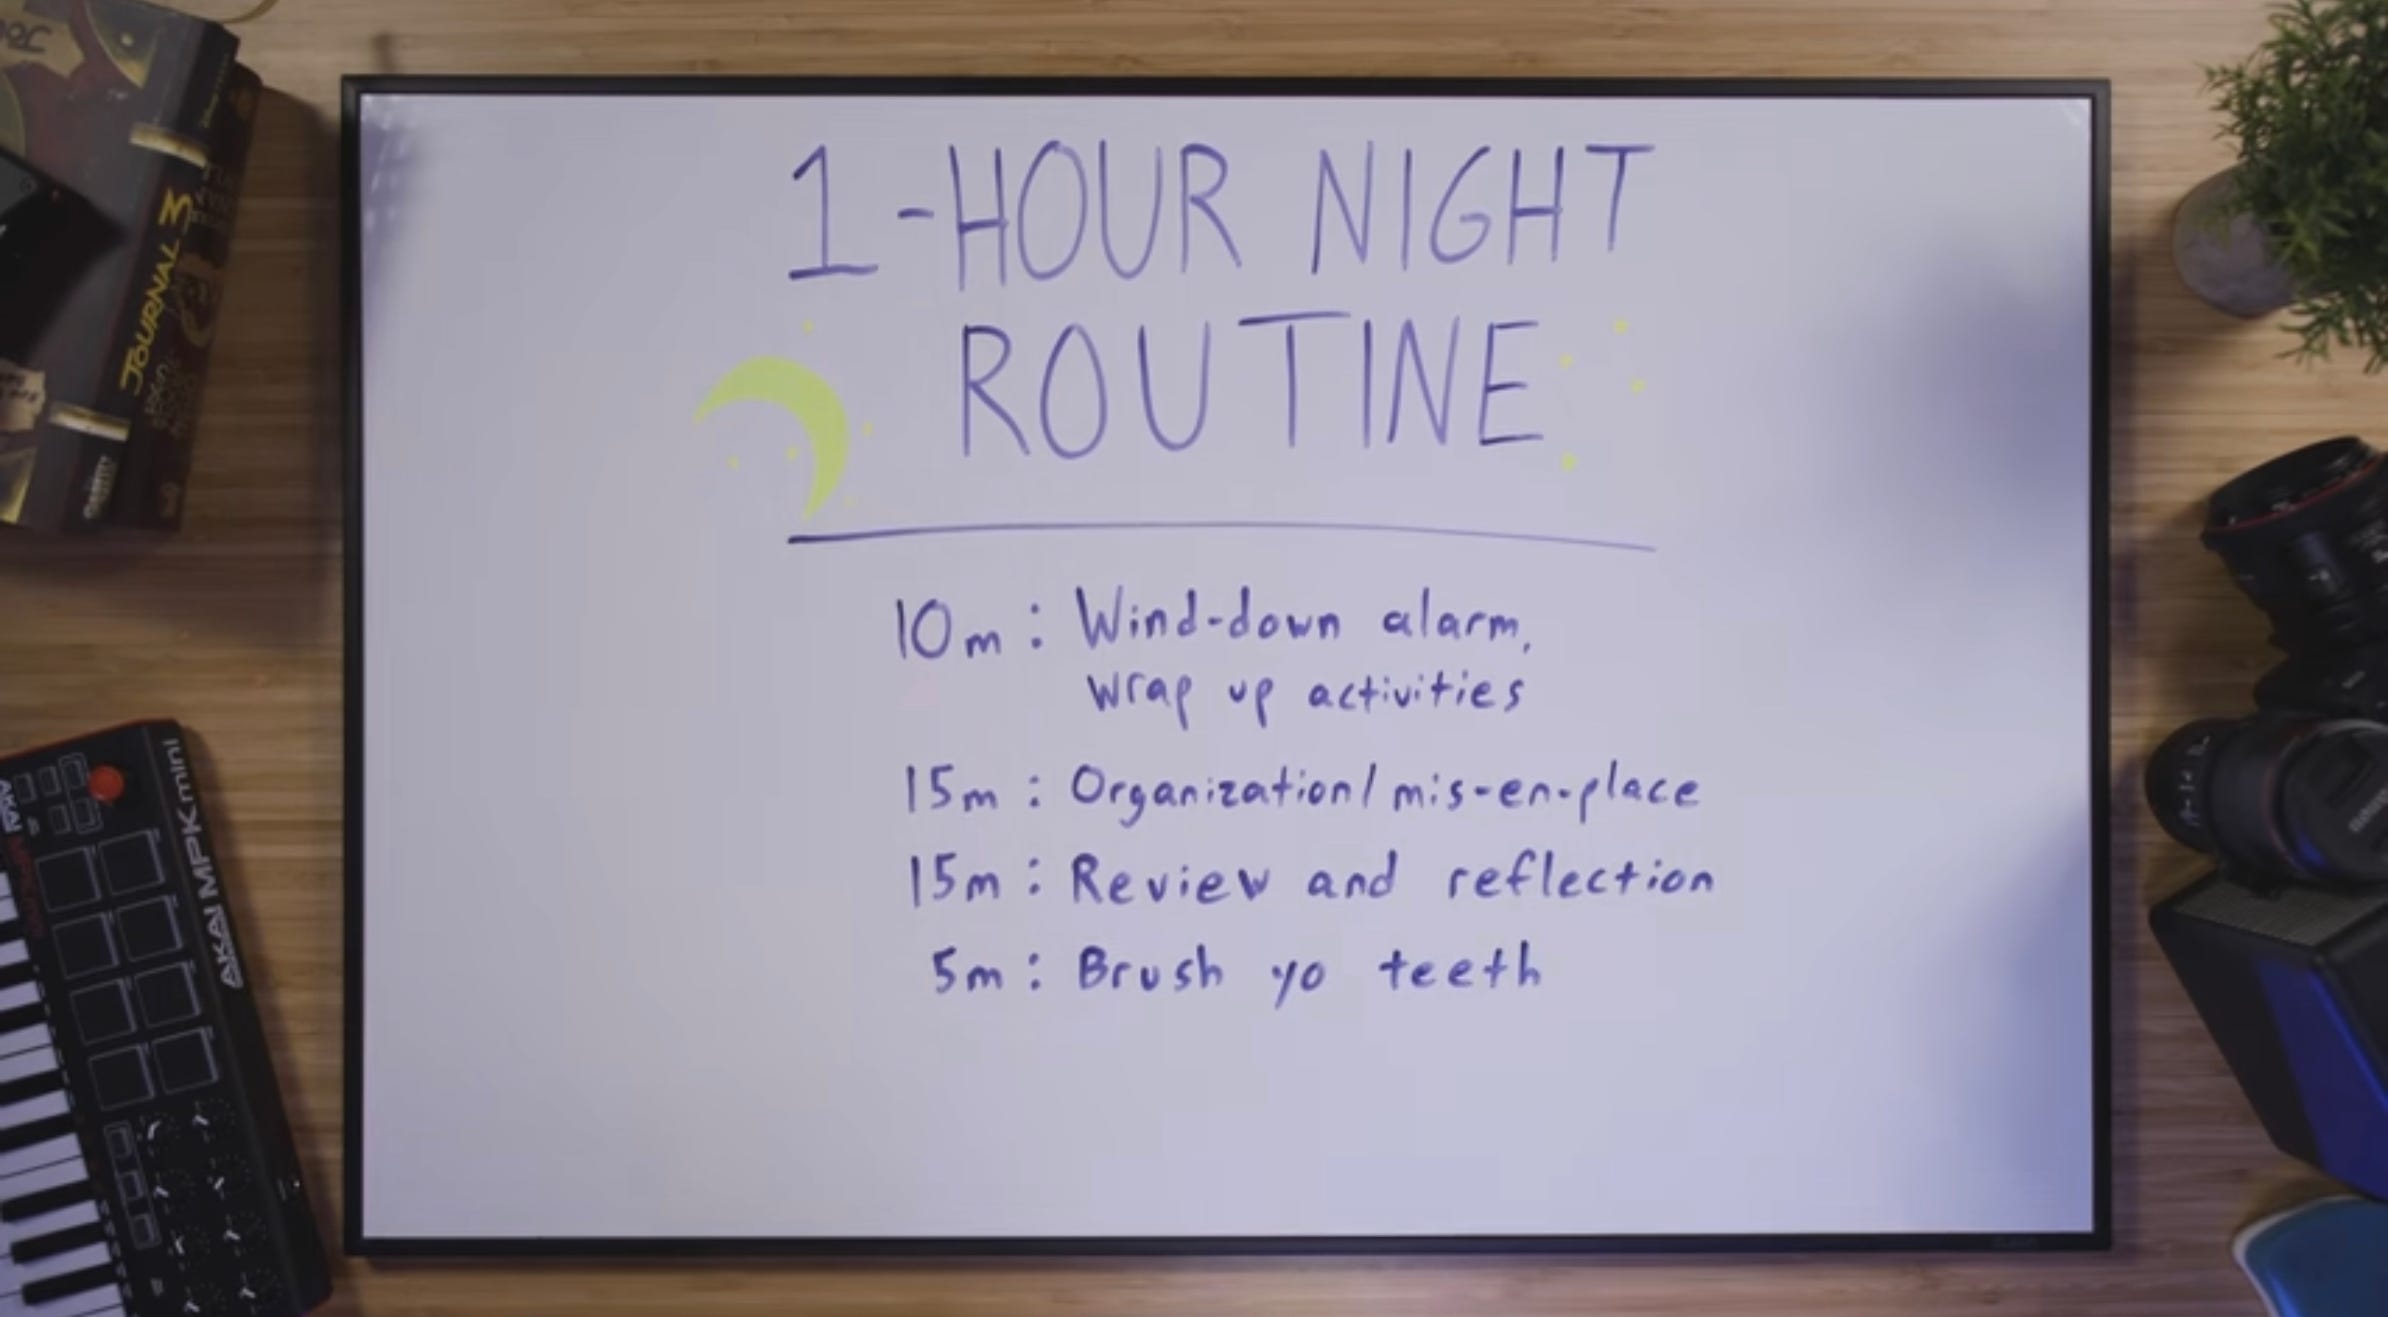 JOURNAL 3
1-HOUR NIGHT
ROUTINE
10m: Wind-down alarm,
wrap up activities
15m: Organization/mis-en-place
15m: Review and reflection
5m: Brush yo teeth
AKAI MPKmini